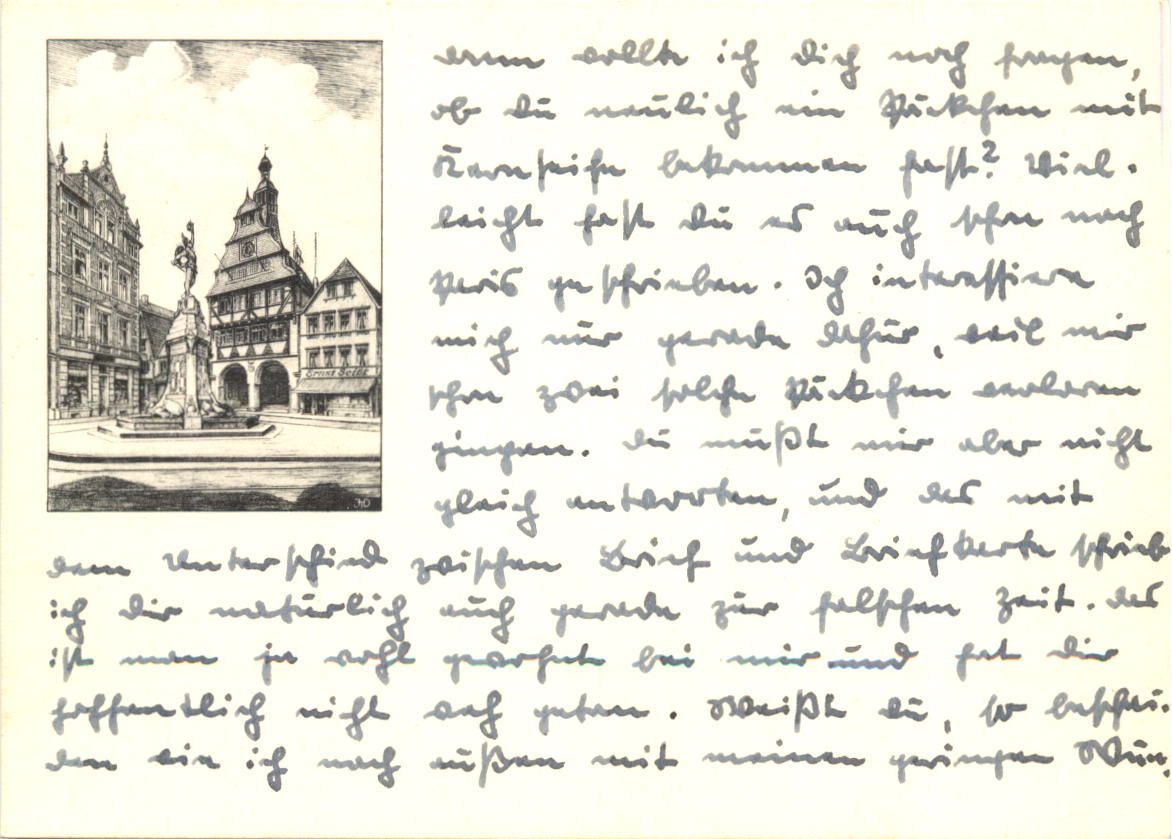 dann wollte ich dich noch fragen,
ob du neulich ein Päckchen mit
Kernseife bekommen hast? Viel-
leicht hast du es auch schon nach
Paris geschrieben. Ich interessiere
mich nur gerade dafür, weil mir
schon zwei solche Päckchen verloren
gingen. du mußt mir aber nicht
gleich antworten, und das mit
dem Unterschied zwischen Brief und Briefkarte schrieb
ich dir natürlich auch gerade zur falschen Zeit. das
ist man ja wohl gewohnt bei mir und hat dir
hoffentlich nicht weh getan. Weißt du, so beschei-
den wie ich nach außen mit meinen geringen Wün-
Ernst Seibt
JHD